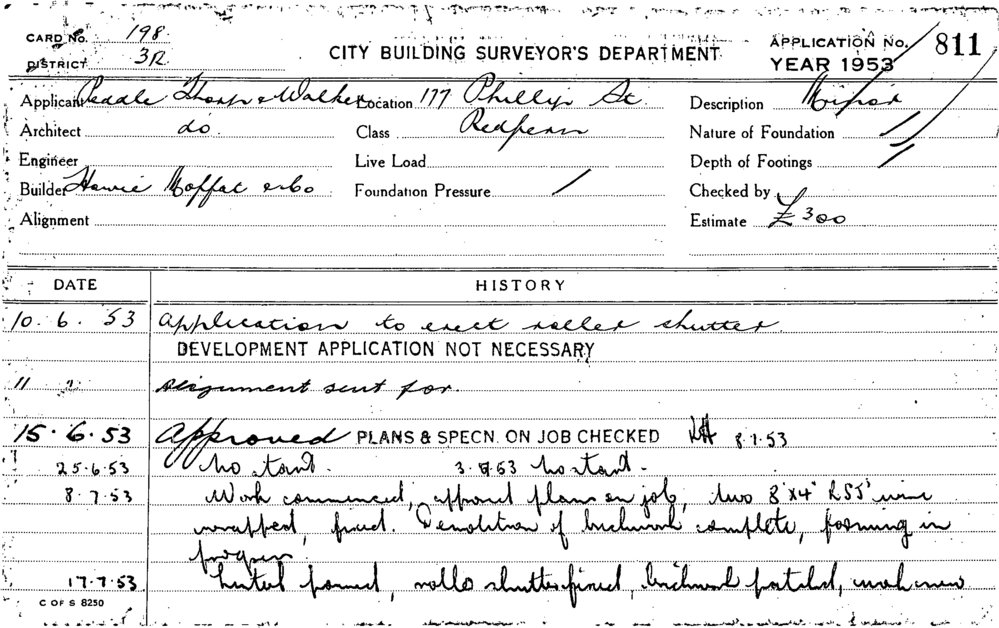 CARD No. 198
DISTRICT 3R
CITY BUILDING SURVEYOR'S DEPARTMENT
APPLICATION No. 811
YEAR 1953
Applicant Peddle Thorp & Walker Location 177 Phillip St. Description Minor
Architect do Class Redfern Nature of Foundation /
Engineer Live Load Depth of Footings /
Builder Howie Moffat & Co Foundation Pressure / Checked by
Alignment Estimate £300
DATE HISTORY
10. 6. 53 Application to erect roller shutter
DEVELOPMENT APPLICATION NOT NECESSARY
11 " Alignment sent for
15. 6. 53 Approved PLANS & SPECN. ON JOB CHECKED 8.7.53
25.6.53 No start. 3.7.53 No start.
8.7.53 Work commenced, approved plans on job, two 8"x4" RSJs wire
wrapped, fixed. Demolition of brickwork complete, forming in
progress
17.7.53 Lintel poured, roller shutter fixed, brickwork
C OF S 8250